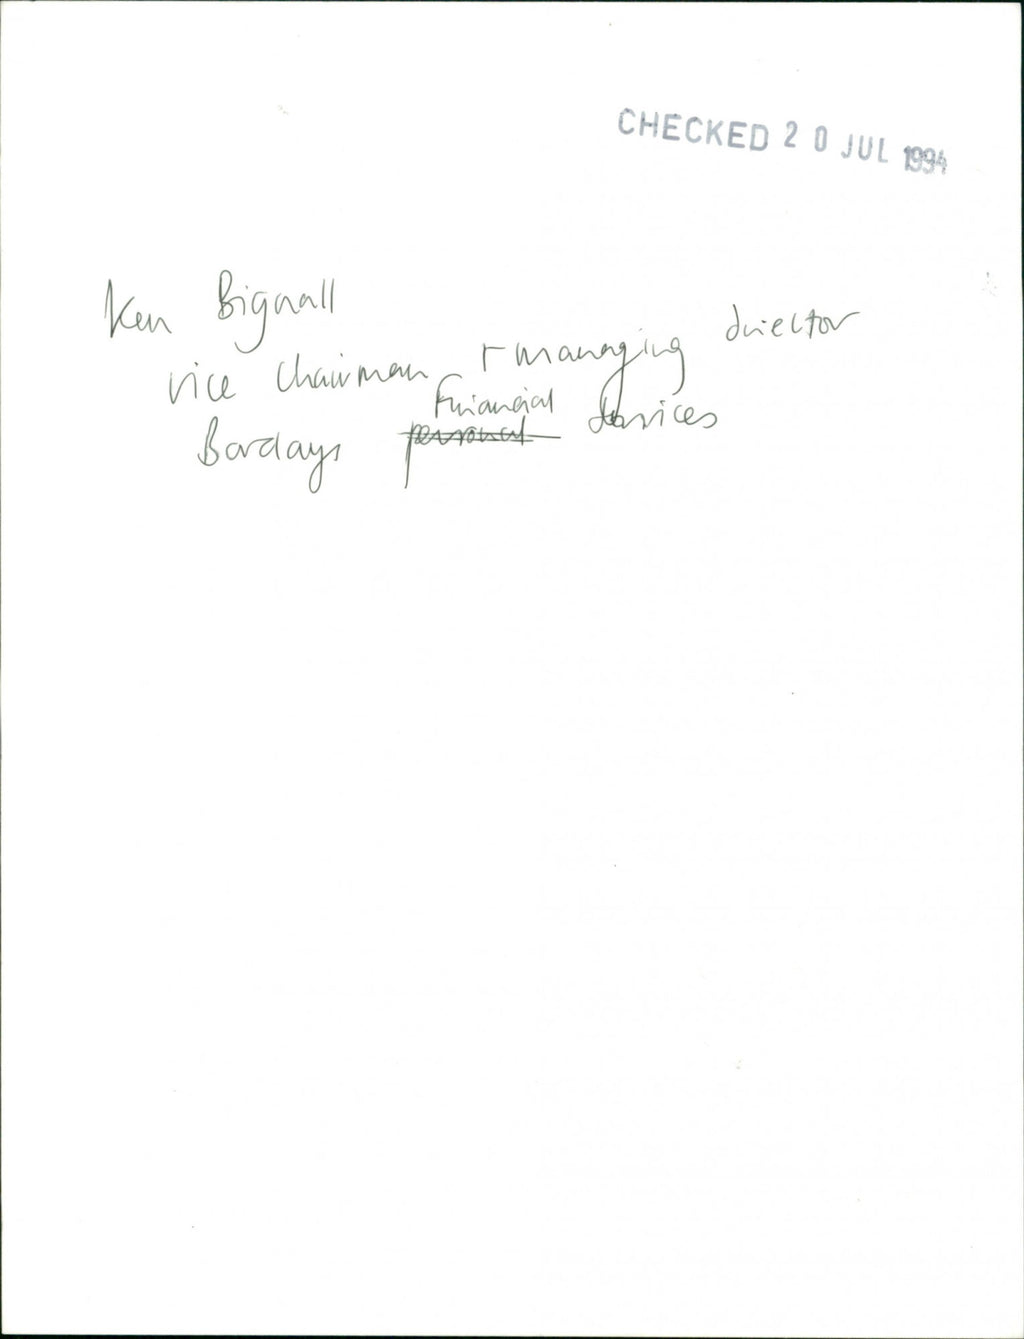 CHECKED 20 JUL 1994
Ken Bignall
vice chairman + managing director
Financial
Barclays personal services